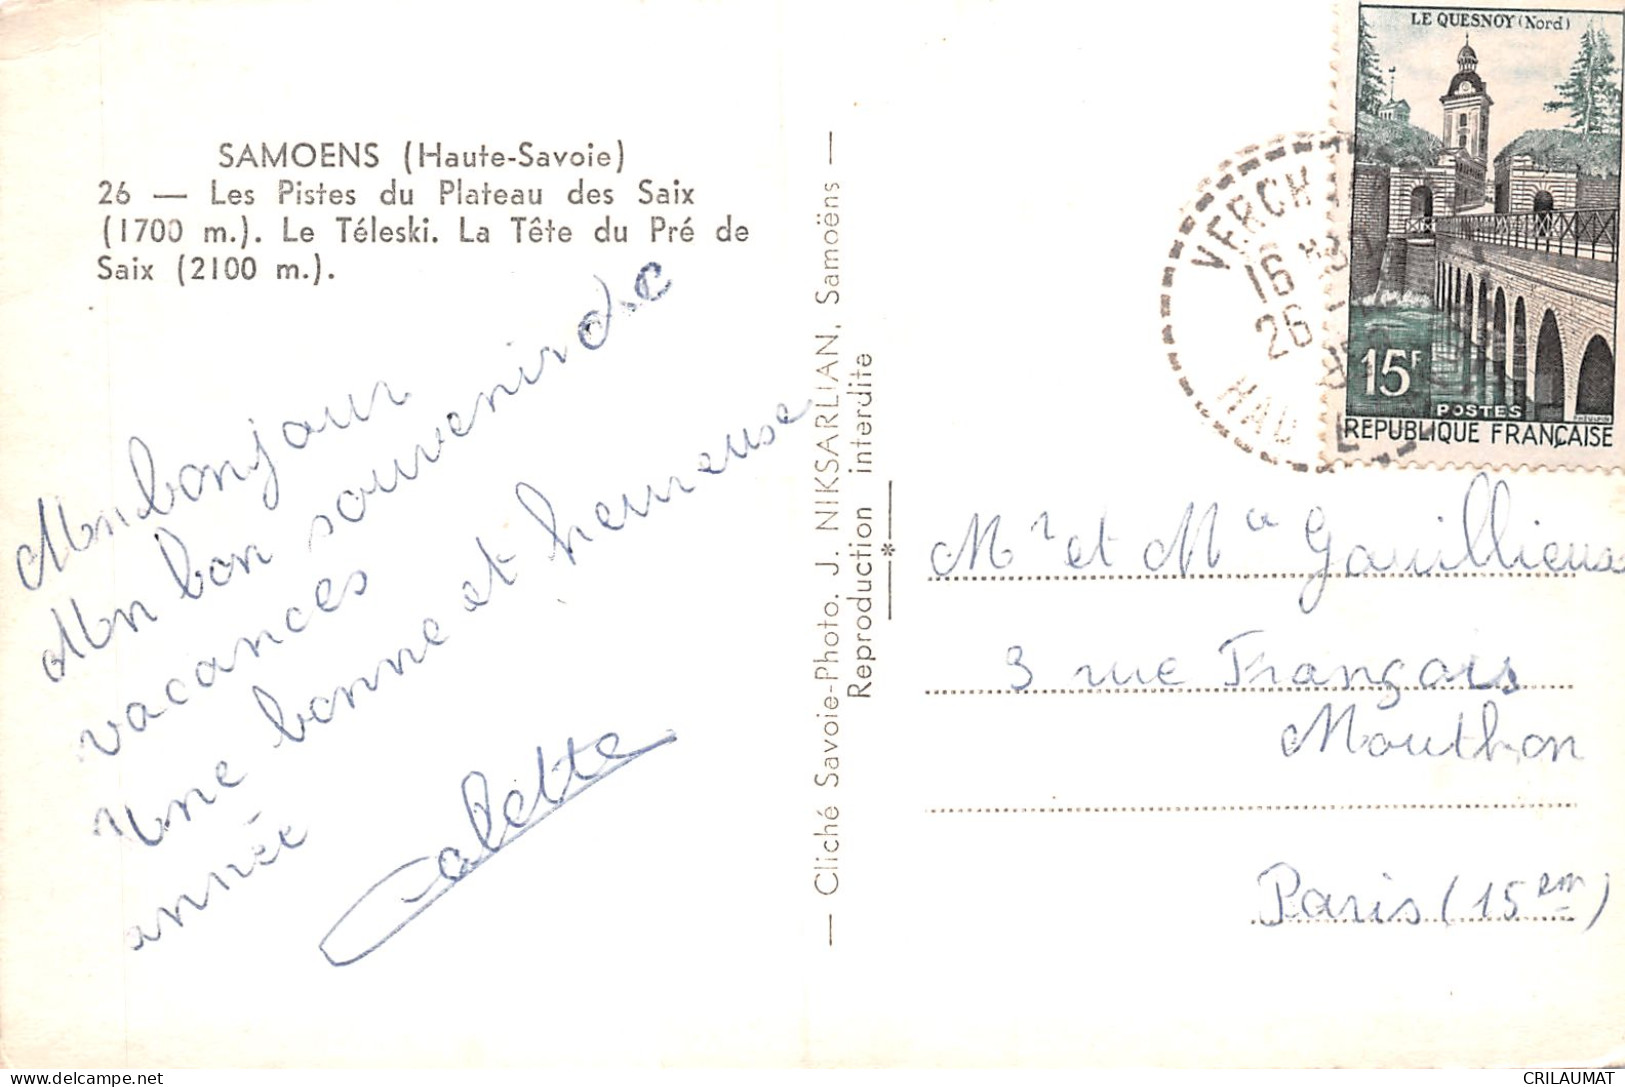 SAMOENS (Haute-Savoie)
26 — Les Pistes du Plateau des Saix
(1700 m.). Le Téleski. La Tête du Pré de
Saix (2100 m.).
Mon bonjour
Mon bon souvenir de
vacances
Une bonne et heureuse
année
Colette
— Cliché Savoie-Photo. J. NIKSARLIAN, Samoëns —
Reproduction interdite
LE QUESNOY (Nord)
15F
POSTES
REPUBLIQUE FRANÇAISE
VERCH
16 H
26
HAU
Mr et Me Gouillieux
3 rue François
Mouthon
Paris (15em)
CRILAUMAT